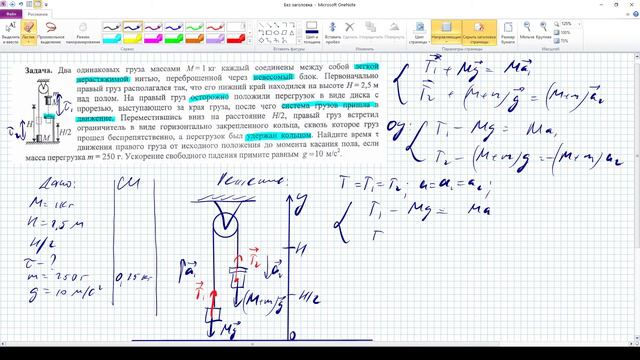 Без заголовка - Microsoft OneNote
Рисование
Задача. Два одинаковых груза массами M = 1 кг каждый соединены между собой легкой
нерастяжимой нитью, переброшенной через невесомый блок. Первоначально
правый груз располагался так, что его нижний край находился на высоте H = 2,5 м
над полом. На правый груз осторожно положили перегрузок в виде диска с
прорезью, выступающего за края груза, после чего система грузов пришла в
движение. Переместившись вниз на расстояние H/2, правый груз встретил
ограничитель в виде горизонтально закрепленного кольца, сквозь которое груз
прошел беспрепятственно, а перегрузок был удержан кольцом. Найдите время τ
движения правого груза от исходного положения до момента касания пола, если
масса перегрузка m = 250 г. Ускорение свободного падения примите равным g = 10 м/с².
H
H/2
T₁ + Mg = Ma₁
T₂ + (M+m)g = (M+m)a₂
oy: T₁ - Mg = Ma₁
T₂ - (M+m)g = -(M+m)a₂
T = T₁ = T₂; a = a₁ = a₂;
T₁ - Mg = Ma
T
Дано:
СИ
M = 1кг
H = 2,5 м
H/2
τ - ?
m = 250г
0,25 кг
g = 10 м/с²
Решение:
y
H
H/2
0
a₁
T₁
Mg
T₂
a₂
(M+m)g